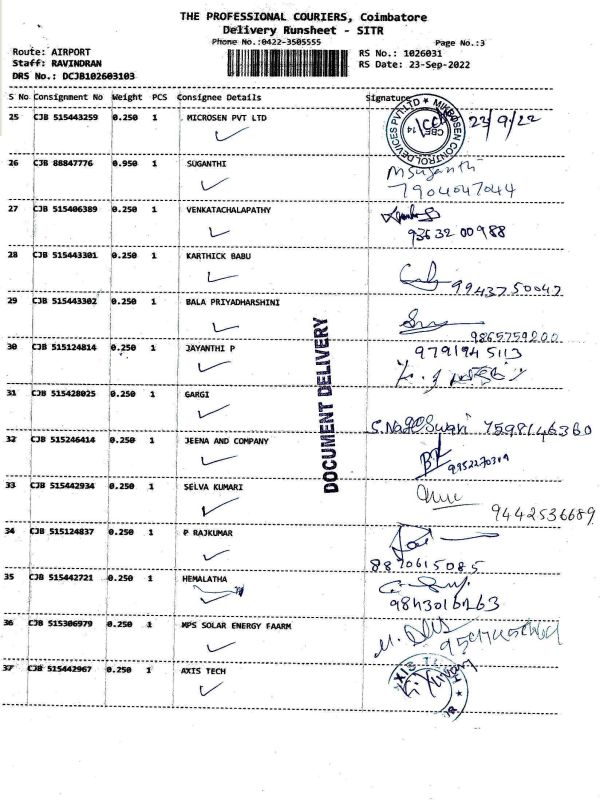 THE PROFESSIONAL COURIERS, Coimbatore
Delivery Runsheet - SITR
Phone No.:0422-3505555 Page No.:3
Route: AIRPORT RS No.: 1026031
Staff: RAVINDRAN RS Date: 23-Sep-2022
DRS No.: DCJB102603103
S No Consignment No Weight PCS Consignee Details Signature
25 CJB 515443259 0.250 1 MICROSEN PVT LTD 23/9/22
MIKROSEN CONTROL DEVICES PVT LTD ★ CBE 14
26 CJB 88847776 0.950 1 SUGANTHI MSuganthi
7904047044
27 CJB 515406389 0.250 1 VENKATACHALAPATHY
93632 00988
28 CJB 515443301 0.250 1 KARTHICK BABU
9943750047
29 CJB 515443302 0.250 1 BALA PRIYADHARSHINI
9865759200
30 CJB 515124814 0.250 1 JAYANTHI P 9791945113
31 CJB 515428025 0.250 1 GARGI
S.Nageswari 7598146360
32 CJB 515246414 0.250 1 JEENA AND COMPANY
33 CJB 515442934 0.250 1 SELVA KUMARI
9442536689
34 CJB 515124837 0.250 1 P RAJKUMAR
8870615085
35 CJB 515442721 0.250 1 HEMALATHA
9843016163
36 CJB 515306979 0.250 1 MPS SOLAR ENERGY FAARM
37 CJB 515442967 0.250 1 AXIS TECH
DOCUMENT DELIVERY